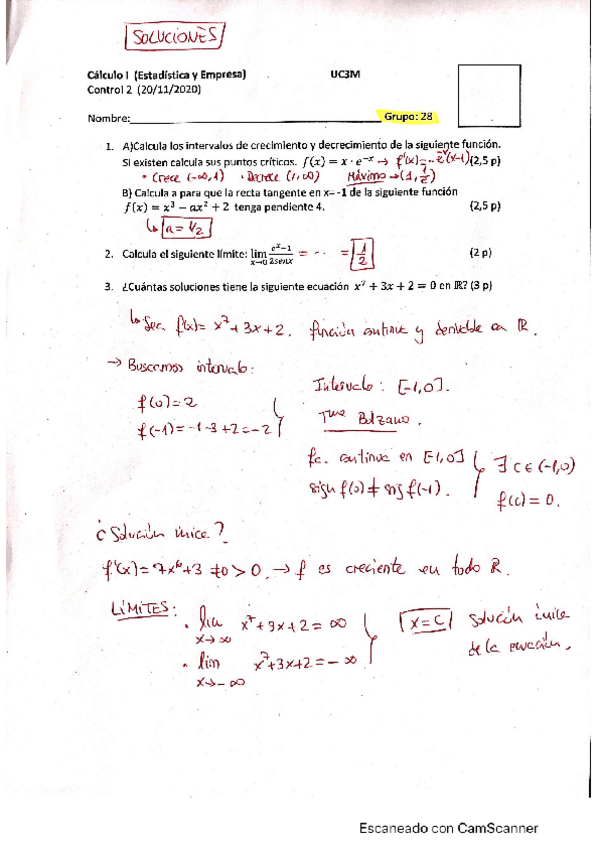 SOLUCIONES
Cálculo I (Estadística y Empresa) UC3M
Control 2 (20/11/2020)
Nombre: Grupo: 28
1. A)Calcula los intervalos de crecimiento y decrecimiento de la siguiente función.
Si existen calcula sus puntos críticos. f(x) = x · e^{-x} → f'(x) = -e^{-x}(x-1) (2,5 p)
• Crece (-∞,1) • Decrece (1,∞) Máximo → (1, 1/e)
B) Calcula a para que la recta tangente en x= -1 de la siguiente función
f(x) = x³ − ax² + 2 tenga pendiente 4. (2,5 p)
↳ a = 1/2
2. Calcula el siguiente límite: lim x→0 (e^x−1)/(2senx) = ... = 1/2 (2 p)
3. ¿Cuántas soluciones tiene la siguiente ecuación x⁷ + 3x + 2 = 0 en ℝ? (3 p)
↳ Sea f(x) = x⁷ + 3x + 2. función continua y derivable en ℝ.
→ Buscamos intervalo:
f(0) = 2
f(-1) = -1-3+2 = -2
Intervalo: [-1,0].
Tma Bolzano.
fc. continua en [-1,0]
sign f(0) ≠ sig f(-1).
∃ c ∈ (-1,0)
f(c) = 0.
¿Solución única?
f'(x) = 7x⁶ + 3 ≠0 > 0. → f es creciente en todo ℝ.
LÍMITES:
• lim x→∞ x⁷+3x+2 = ∞
• lim x→-∞ x⁷+3x+2 = -∞
x = c solución única
de la ecuación.
Escaneado con CamScanner